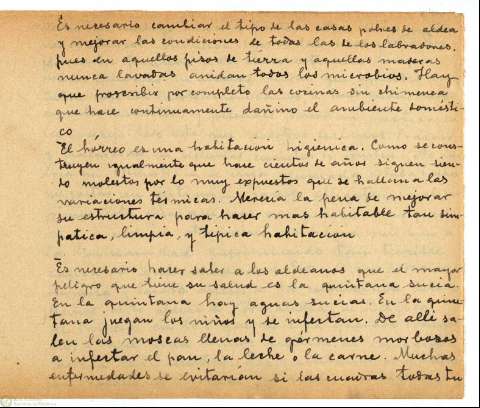 Es necesario cambiar el tipo de las casas pobres de aldea
y mejorar las condiciones de todas las de los labradores,
pues en aquellos pisos de tierra y aquellas maderas
nunca lavadas anidan todos los microbios. Hay
que proscribir por completo las cocinas sin chimenea
que hace continuamente dañino el ambiente domésti-
co
El hórreo es una habitacion higienica. Como se cons-
truyen igualmente que hace cientos de años siguen sien-
do molestos por lo muy expuestos que se hallan a las
variaciones térmicas. Merecia la pena se mejorar
su estructura para hacer mas habitable tan sim-
patica, limpia, y tipica habitacion
Es necesario hacer saber a los aldeanos que el mayor
peligro que tiene su salud es la quintana sucia.
En la quintana hay aguas sucias. En la quin-
tana juegan los niños y se infertan. De alli sa-
len las moscas llenas de gérmenes morbosos
a infertar el pan, la leche o la carne. Muchas
enfermedades se evitarian si las cuadras todas tu